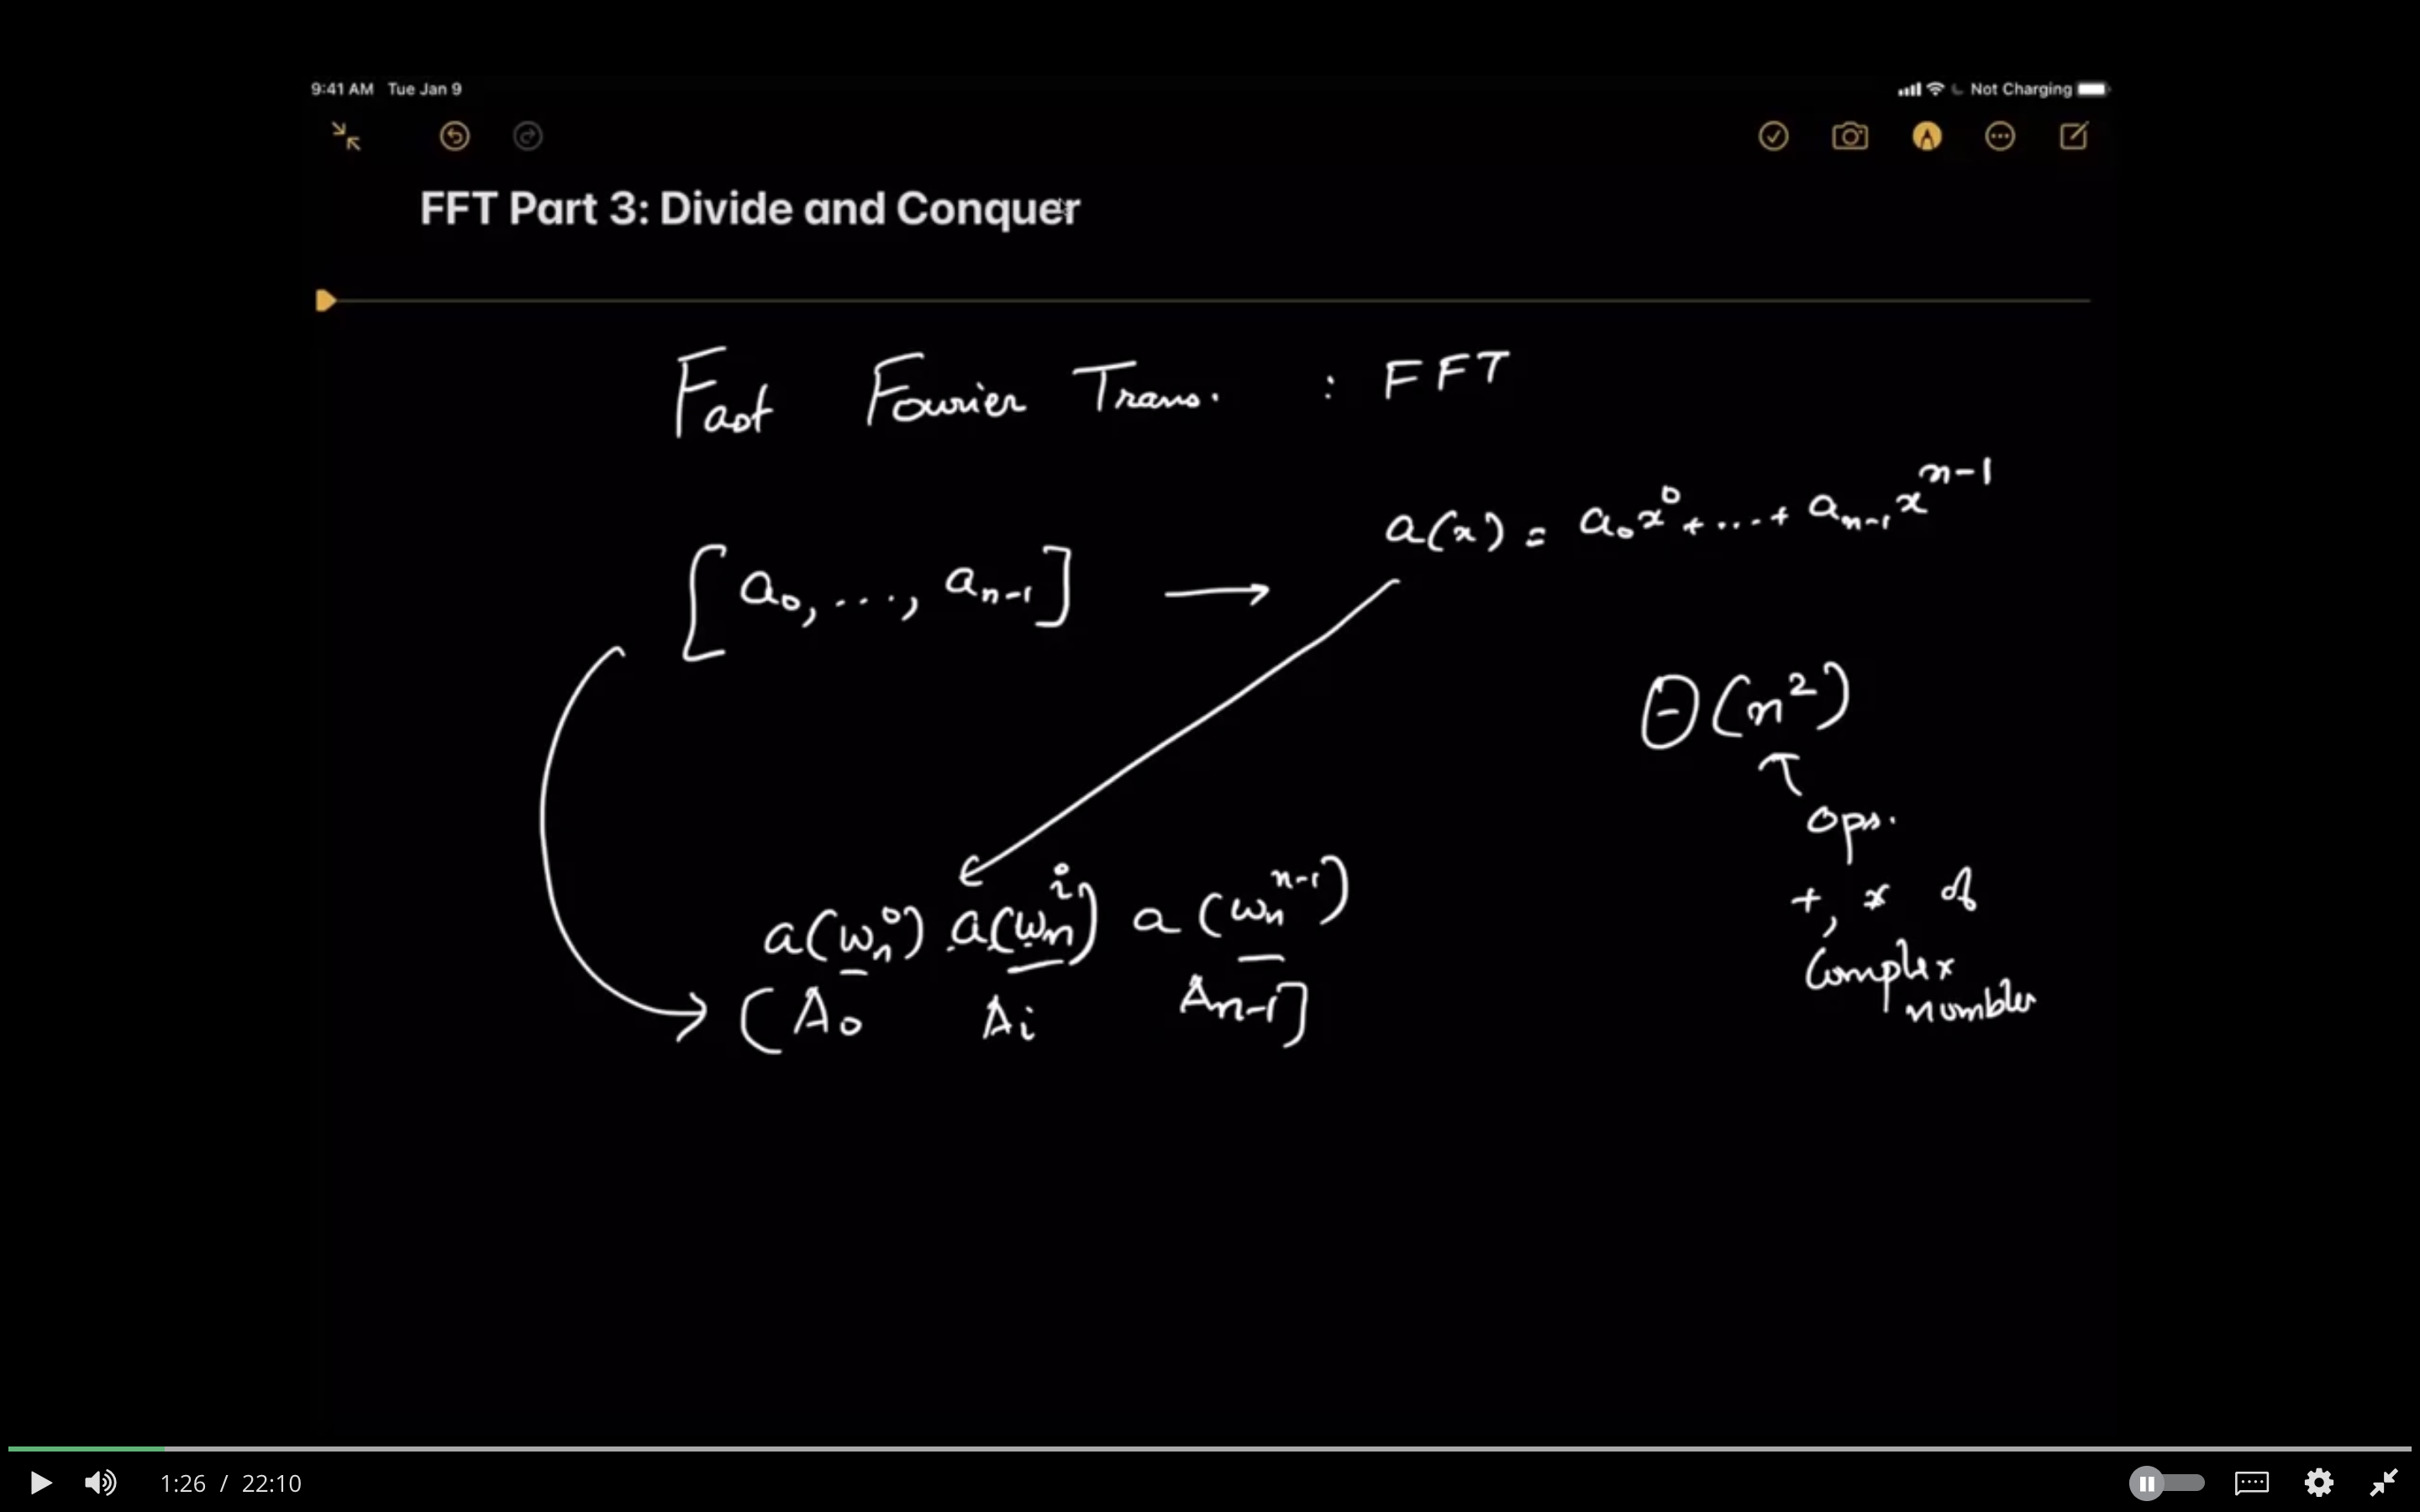 9:41 AM Tue Jan 9
Not Charging
FFT Part 3: Divide and Conquer
Fast Fourier Trans. : FFT
a(x) = a₀x⁰ + ... + aₙ₋₁xⁿ⁻¹
[a₀, ..., aₙ₋₁] →
Θ(n²)
↑
ops.
+, * of
Complex
numbers
a(ωₙ⁰) a(ωₙⁱ) a(ωₙⁿ⁻¹)
[A₀ Aᵢ Aₙ₋₁]
1:26 / 22:10